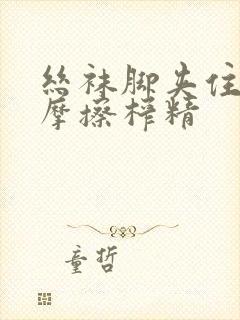 丝袜脚夹住
摩擦榨精
童哲